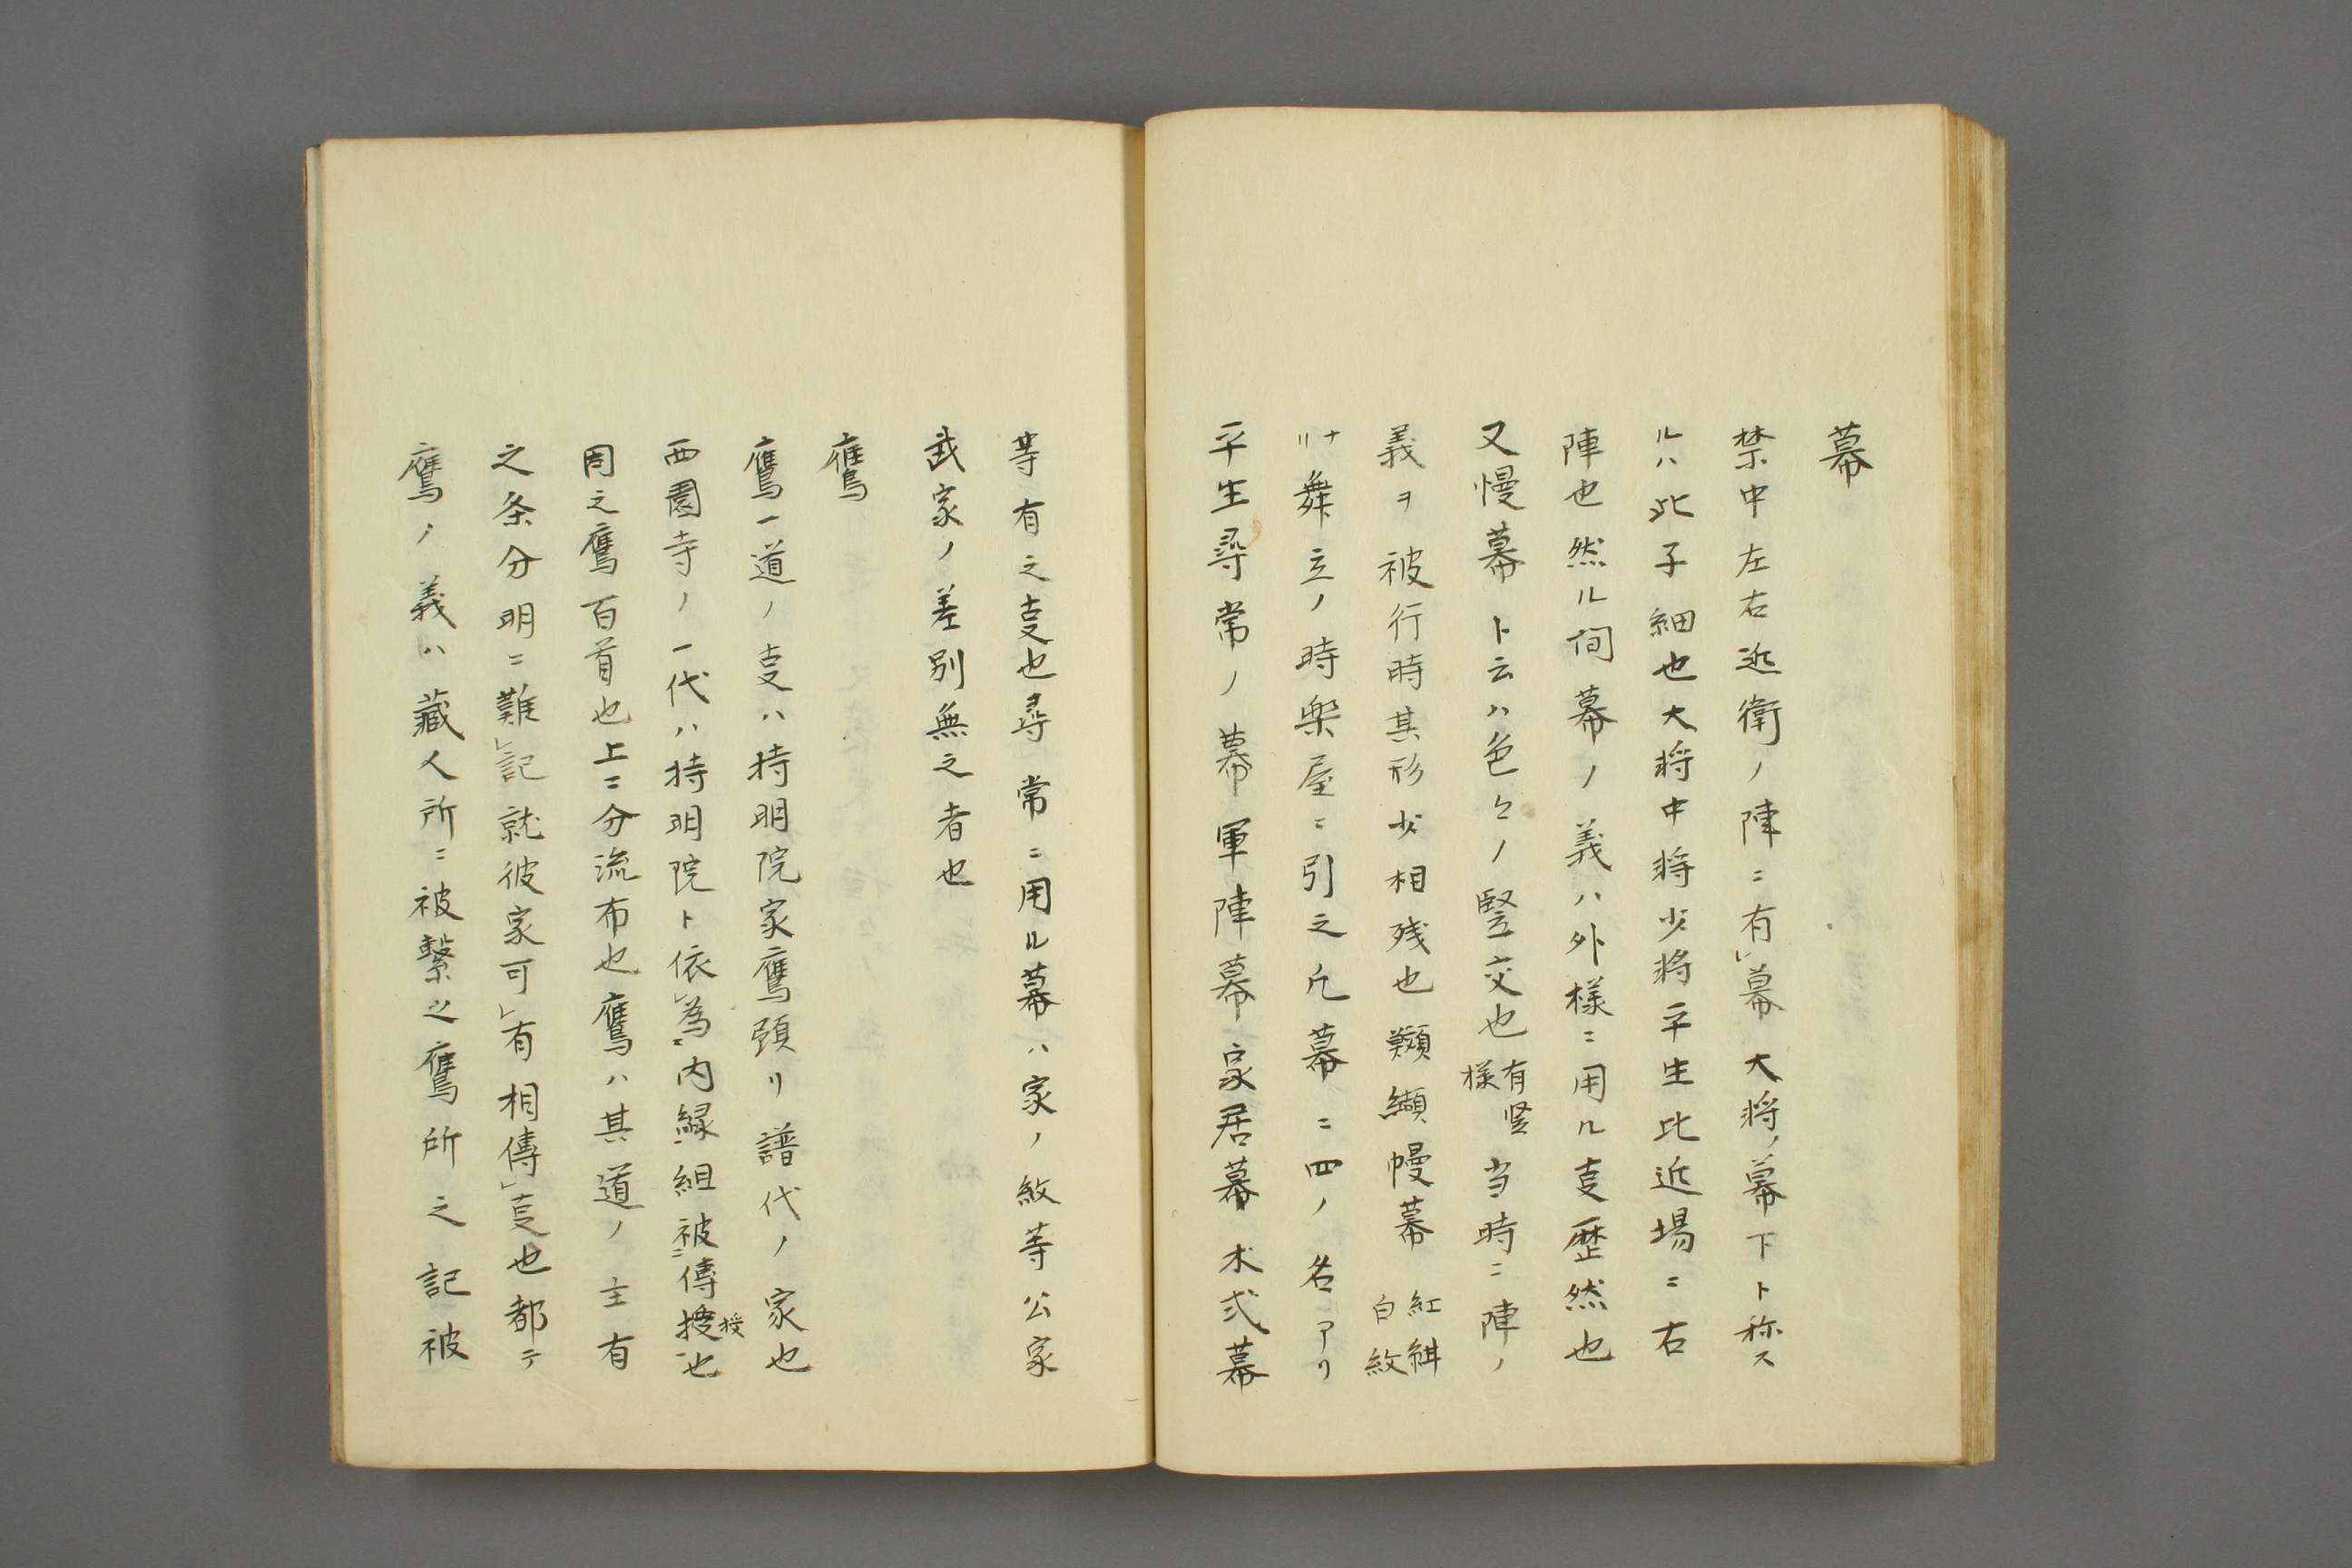 幕
禁中左右近衛ノ陣ニ有㆑幕大将ノ幕下ト称ス
ルハ此子細也大将中将少将平生比近場ニ右
陣也然ル間幕ノ義ハ外様ニ用ル㕝歴然也
又慢幕ト云ハ色々ノ竪交也有竪様当時ニ陣ノ
義ヲ被行時其形少相残也纐纈幔幕紅絓白紋
ナリ舞立ノ時楽屋ニ引之凡幕ニ四ノ名アリ
平生尋常ノ幕軍陣幕家居幕木式幕
等有之㕝也尋常ニ用ル幕ハ家ノ紋等公家
武家ノ差別無之者也
鷹
鷹一道ノ㕝ハ持明院家鷹頚リ譜代ノ家也
西園寺ノ一代ハ持明院ト依㆑為㆓内縁㆒組被㆓傳授㆒也
授
因之鷹百首也上ニ分流布也鷹ハ其道ノ主有
之条分明ニ難㆑記就彼家可㆑有相傳㆑㕝也都テ
鷹ノ義ハ蔵人所ニ被繋之鷹所之記被